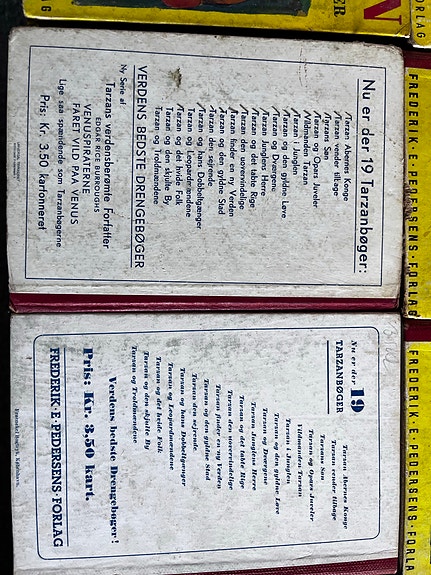 Nu er der 19 Tarzanbøger:
Tarzan Abernes Konge
Tarzan vender tilbage
Tarzans Søn
Tarzan og Opars Juveler
Vildmanden Tarzan
Tarzan i Junglen
Tarzan og den gyldne Løve
Tarzan og Dværgene
Tarzan Junglens Herre
Tarzan og det tabte Rige
Tarzan den uovervindelige
Tarzan finder en ny Verden
Tarzan og den gyldne Stad
Tarzan den sejrende
Tarzan og hans Dobbeltgænger
Tarzan og Leopardmændene
Tarzan og det hvide Folk
Tarzan og den skjulte By
Tarzan og Troldmændene
VERDENS BEDSTE DRENGEBØGER
Ny Serie af
Tarzans verdensberømte Forfatter
EDGAR RICE BURROUGHS
VENUSPIRATERNE
FARET VILD PAA VENUS
Lige saa spændende som Tarzanbøgerne
Pris: Kr. 3,50 kartonneret
Nu er der 19
TARZANBØGER
Tarzan Abernes Konge
Tarzan vender tilbage
Tarzans Søn
Tarzan og Opars Juveler
Vildmanden Tarzan
Tarzan i Junglen
Tarzan og den gyldne Løve
Tarzan og Dværgene
Tarzan Junglens Herre
Tarzan og det tabte Rige
Tarzan den uovervindelige
Tarzan finder en ny Verden
Tarzan og den gyldne Stad
Tarzan den sejrende
Tarzan og hans Dobbeltgænger
Tarzan og Leopardmændene
Tarzan og det hvide Folk
Tarzan og den skjulte By
Tarzan og Troldmændene
Verdens bedste Drengebøger!
Pris: Kr. 3,50 kart.
FREDERIK·E·PEDERSENS·FORLAG
FREDERIK·E·PEDERSENS·FORLAG
FREDERIK·E·PEDERSENS·FORLA
FORLAG